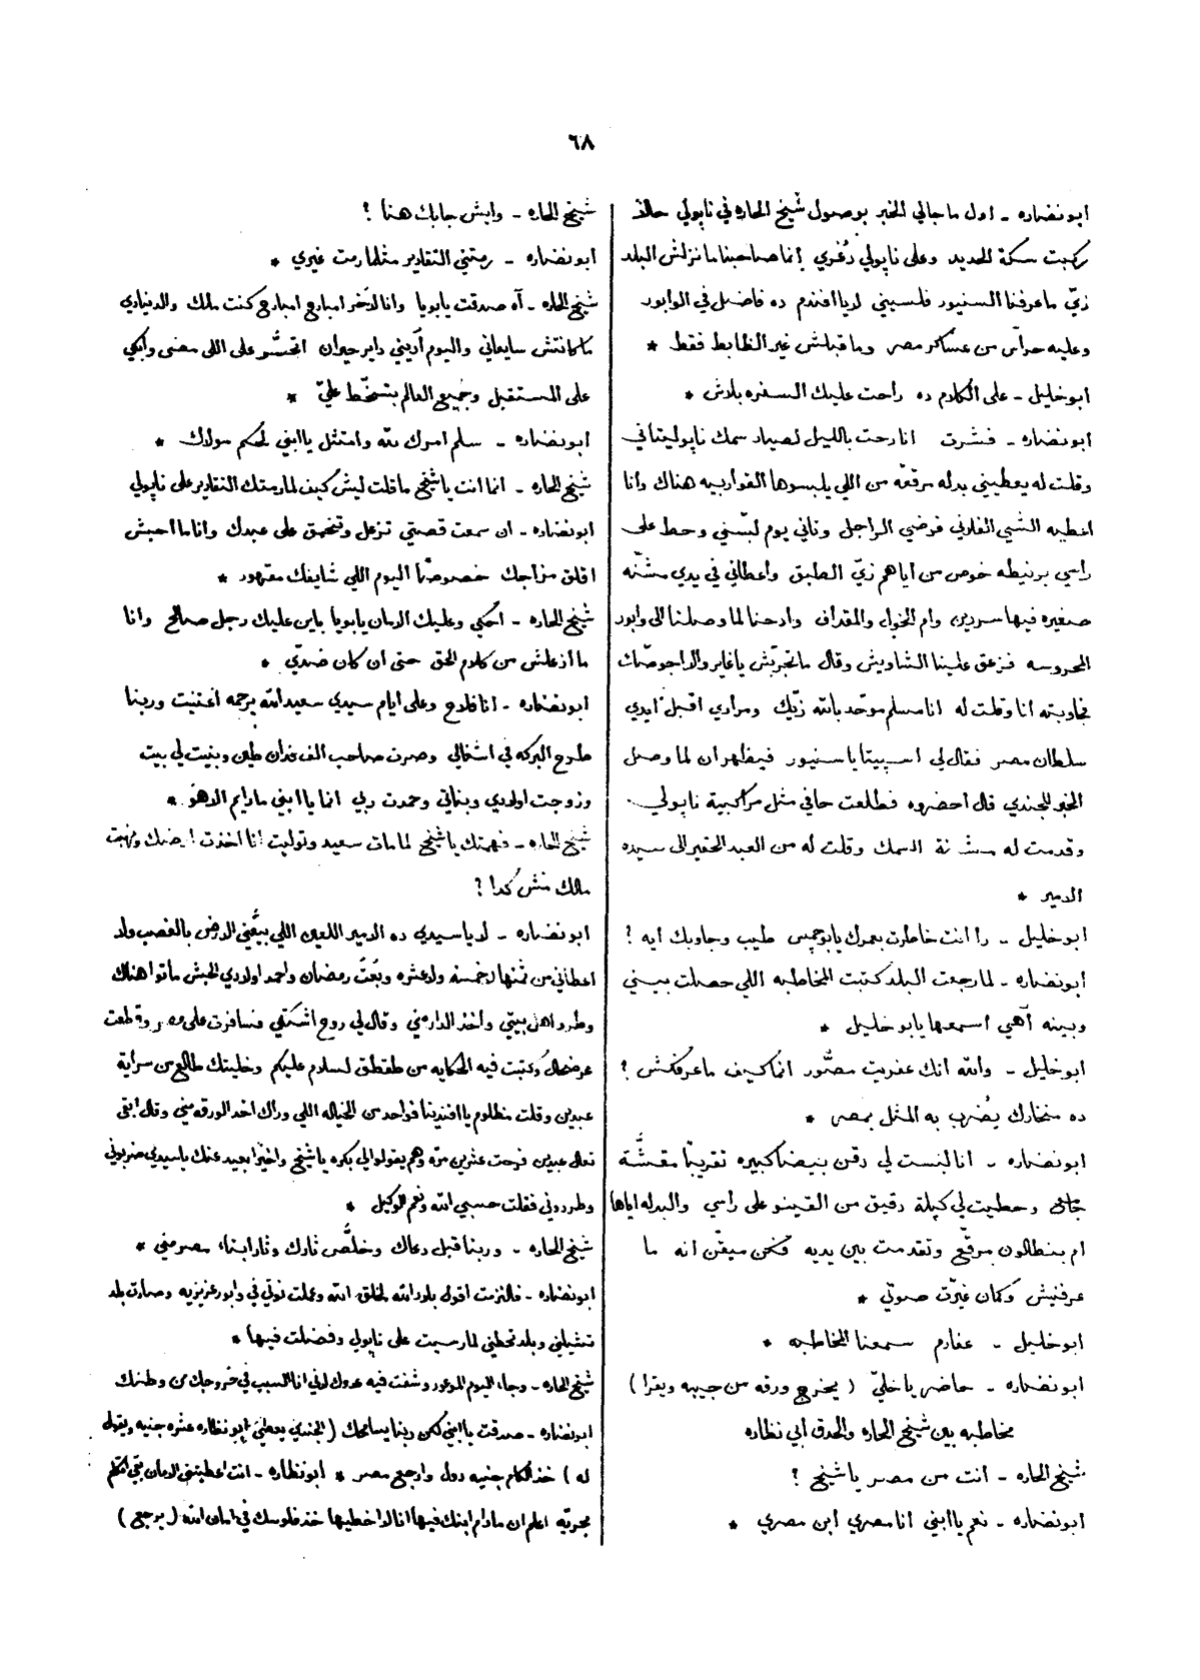 ٦٨
ابو نضاره - اول ما جالي الخبر بوصول شيخ الحاره في ناپولي حالاً
ركبت سكة الحديد وعلى ناپولي دُغري إنما صاحبنا ما نزلش البلد
زيّ ما عرفنا السنيور فلسيني لو يا افندم ده فاضل في الوابور
وعليه حرّاس من عساكر مصر وما قبلش غير الظابط فقط *
ابو خليل - على الكلام ده راحت عليك السفره بلاش *
ابو نضاره - فشرت انا رحت بالليل لصياد سمك ناپوليتاني
وقلت له يعطيني بدله مرقعه من اللي يلبسوها القواربيه هناك وأنا
اعطيه الشيى الفلاني فرضي الراجل وتاني يوم لبّسني وحط على
راسي برنيطه خوص من اياهم زيّ الطبق واعطاني في يدي مشنّه
صغيره فيها سردين وام الخلول والمقداف وادحنا لما وصلنا الى وابور
المحروسه فزعق علينا الشاويش وقال ما تجربّش يا غاير والا جوضّات
نجاوبته أنا وقلت له انا مسلم موحّد بالله زيّك ومرادي اقبل ايدي
سلطان مصر فقال لي اسپيتا يا سنيور فيظهر ان لما وصل
الخبر للجندي قال احضروه فطلعت حافي مثل مراكبية ناپولي
وقدمت له مشنة السمك وقلت له من العبد الحقير الى سيده
الامير *
ابو خليل - دا انت خاطرت بعمرك يا بو جمس طيب وجاوبك ايه ؟
ابو نضاره - لما رجعت البلد كتبت المخاطبه اللي حصلت بيني
وبينه آهي اسمعها يا بو خليل *
ابو خليل - والله انك عفريت مصوّر انما كيف ما عرفكش ؟
ده منخارك يُضرب به المثل بمصر *
ابو نضاره - انا لبست لي دقن بيضا كبيره تقريبًا مقشّة
وحطيت لي كيلة دقيق من القينو على راسي والبدله اياها
ام بنطالون مرقّع وتقدمت بين يديه فكن ميقّن انه ما
عرفنيش وكمان غيّرت صوتي *
ابو خليل - عفارم سمعنا المخاطبه *
ابو نضاره - حاضر يا خليّ ( يخرج ورقه من جيبه ويقرا )
مخاطبه بين شيخ الحاره والحدق ابي نظاره
شيخ الحاره - انت من مصر يا شيخ ؟
ابو نضاره - نعم يا ابني انا مصري ابن مصري *
شيخ الحاره - وايش جابك هنا ؟
ابو نضاره - رمتني التقادير مثلما رمت غيري *
شيخ الحاره - آه صدقت يا بويا وانا لاخر امبارح امبارح كنت ملك والدنيا دي
ما كانتش سايعاني واليوم أديني داير حيران اتحسّر على اللى مضى وأبكي
على المستقبل وجميع العالم بتسخّط عليّ *
ابو نضاره - سلم امرك لله وامتثل يا ابني لحكم مولاك *
شيخ الحاره - انما انت يا شيخ ما قلت ليش كيف لما رمتك التقادير على ناپولي
ابو نضاره - ان سمعت قصتي تزعل وتتحمق على عبدك وانا ما احبش
اقلق مزاجك خصوصًا اليوم اللي شايفك مقهور *
شيخ الحاره - احكي وعليك الامان يا بويا باين عليك رجل صالح وانا
ما ازعلش من كلام الحق حتى ان كان ضدّي *
ابو نضاره - انا فلاح وعلى ايام سيدي سعيد الله يرحمه اغتنيت وربنا
طرح البركه في اشغالي وصرت صاحب الف فدان طين وبنيت لي بيت
وزوجت اولادي وبناتي وحمدت ربي انما يا ابني ما دايم الا هُو *
شيخ الحاره - فهمتك يا شيخ لما مات سعيد وتوليت انا اخذت ارضك ونهبت
مالك مش كدا ؟
ابو نضاره - لا يا سيدي ده الامير اللعين اللي بيّعني الارض بالغصب ولا
اعطاني من ثمنها لا خمسه ولا عشره وبُعت رمضان واحمد اولادي الحبش ماتوا هناك
وطرد اهل بيتي واخذ الدار مني وقال لي روح اشتكي فسافرت على مصر وقطعت
عرضحال وكتبت فيه الحكايه من طقطق لسلام عليكم وخليتك طالع من سراية
عبدين وقلت مظلوم يا افندينا فواحد من الخياله اللي وراك اخد الورقه مني وقال ابقى
تعال عبدين فرحت عشرين مرّه وهم يقولوا لي بكره يا شيخ واخيرًا بعيد عنك يا سيدي ضربوني
وطردوني فقلت حسبي الله ونعم الوكيل *
شيخ الحاره - وربنا قبل دعاك وخلّص تارك وتار ابناء مصر مني *
ابو نضاره - فالتزمت اقول بلاد الله لخلق الله وعملت نوتي في وابور عزيزيه وصارت بلد
تشيلني وبلد تحطني لما رسيت على ناپولي وفضلت فيها *
شيخ الحاره - وجاء اليوم الموعود وشفت فيه عدوك لاني انا السبب في خروجك من وطنك
ابو نضاره - صدقت يا ابني لكن ربنا يسامحك ( الجندي يعطي ابو نظاره عشره جنيه ويقول
له ) خذ لكام جنيه دول وارجع مصر * ابو نظاره - انت اعطيتني الامان بقى اتكلم
بحريّه اعلم ان ما دام ابنك فيها انا لا اخطيها خذ فلوسك في امان الله ( يرجع )